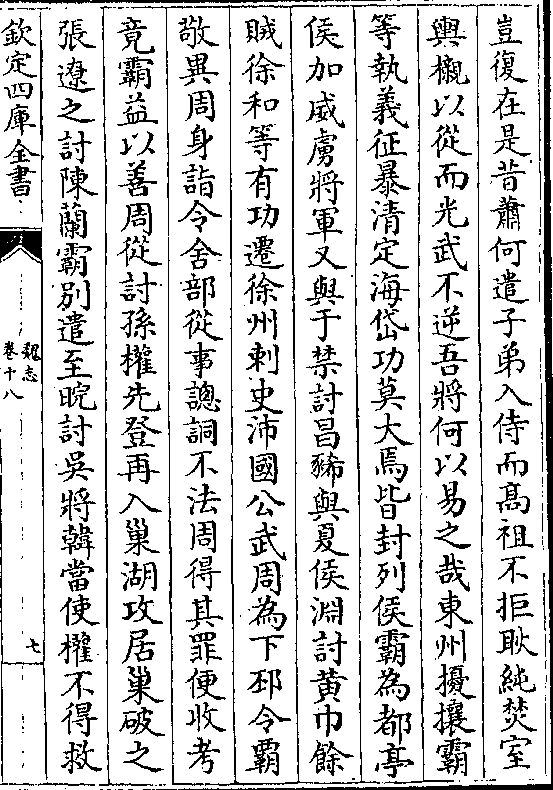 豈復在是昔蕭何遣子弟入侍而髙祖不拒耿純焚室
輿櫬以從而光武不逆吾將何以易之哉東州擾攘霸
等執義征暴清定海岱功莫大焉皆封列侯霸為都亭
侯加威虜將軍又與于禁討昌豨與夏侯淵討黄巾餘
賊徐和等有功遷徐州刺史沛國公武周為下邳令霸
敬異周身詣令舍部從事謥詷不法周得其罪便收考
竟霸益以善周從討孫權先登再入巢湖攻居巢破之
張遼之討陳蘭霸别遣至晥討吳將韓當使權不得救
欽定四庫全書
魏志
卷十八
七